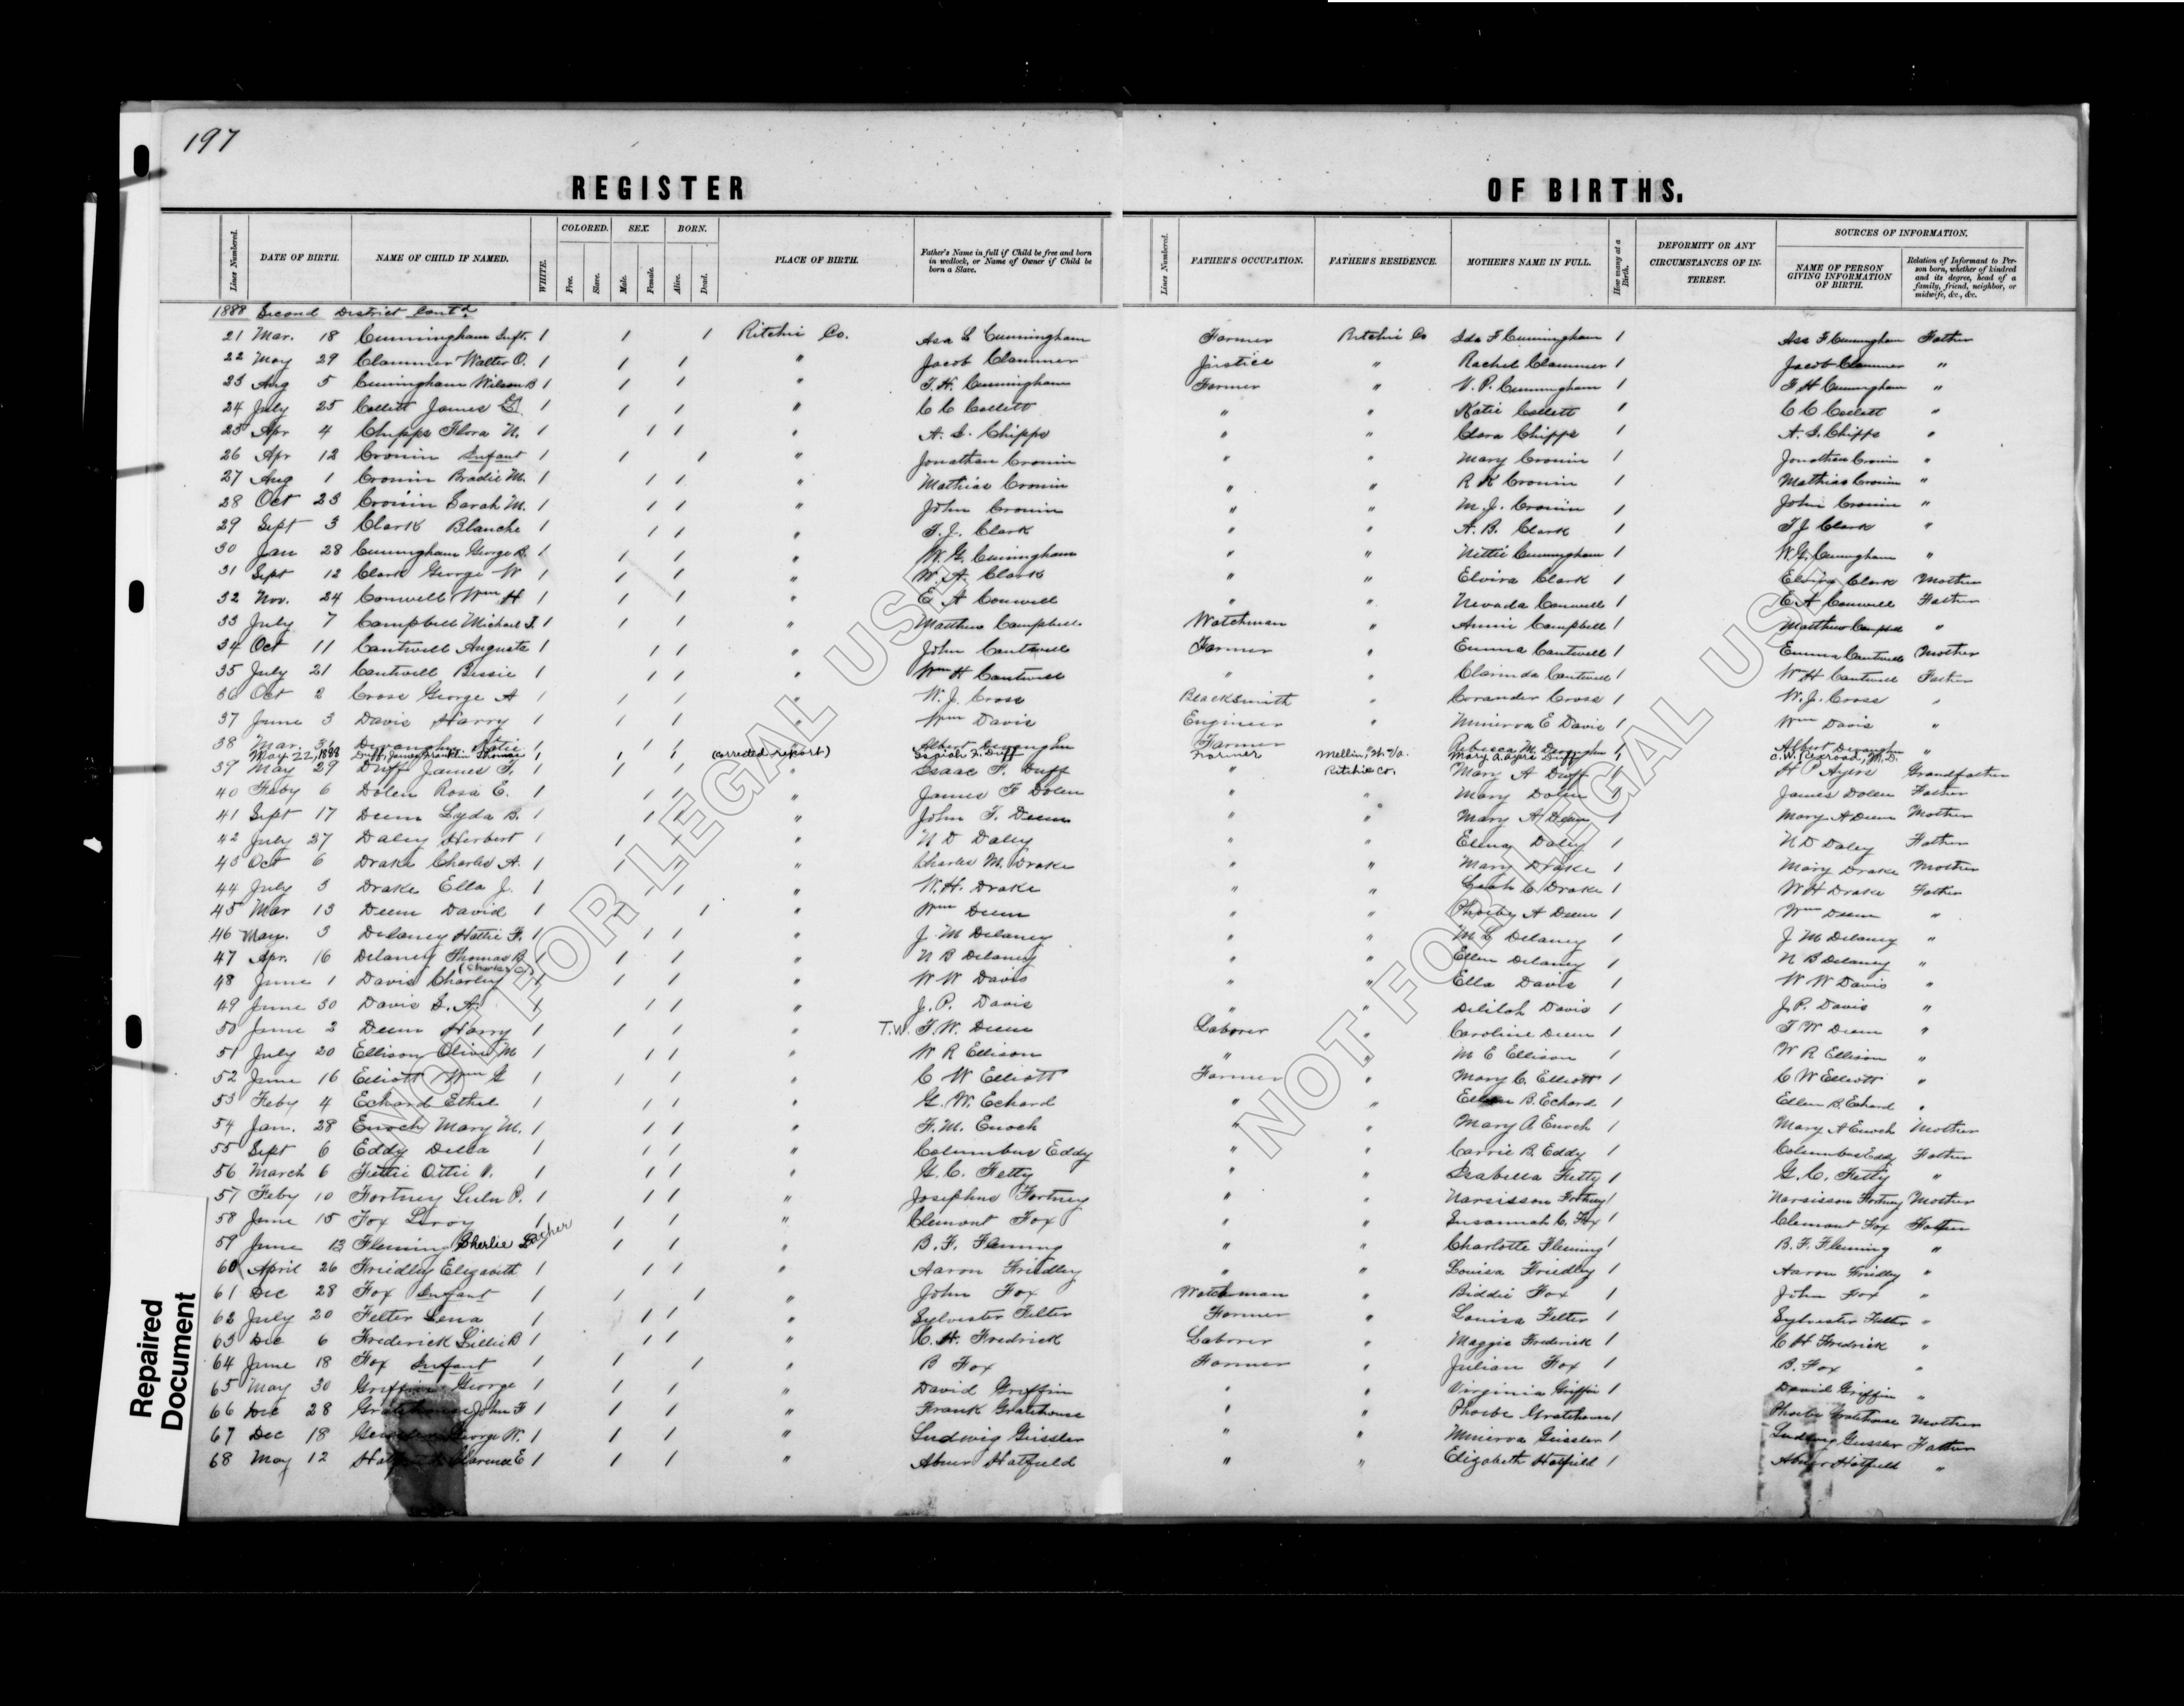 197
REGISTER OF BIRTHS.
Lines Numbered. DATE OF BIRTH. NAME OF CHILD IF NAMED. WHITE. COLORED. Free. Slave. SEX. Male. Female. BORN. Alive. Dead. PLACE OF BIRTH. Father's Name in full if Child be free and born in wedlock, or Name of Owner if Child be born a Slave. Lines Numbered. FATHER'S OCCUPATION. FATHER'S RESIDENCE. MOTHER'S NAME IN FULL. How many at a Birth. DEFORMITY OR ANY CIRCUMSTANCES OF INTEREST. SOURCES OF INFORMATION. NAME OF PERSON GIVING INFORMATION OF BIRTH. Relation of Informant to Person born, whether of kindred and its degree, head of a family, friend, neighbor, or midwife, &c., &c.
1888 Second District Cont'd
21 Mar. 18 Cunningham Inft. 1 1 1 Ritchie Co. Asa L Cunningham Farmer Ritchie Co Ida F Cunningham 1 Asa F Cunningham Father
22 May 29 Clammer Walter O. 1 1 1 " Jacob Clammer Justice " Rachel Clammer 1 Jacob Clammer "
23 Aug 5 Cuningham Wilson B 1 1 1 " T. H. Cunningham Farmer " V. P. Cunningham 1 T H Cunningham "
24 July 25 Collett James 1 1 1 " C C Collett " " Katie Collett 1 C C Collett "
25 Apr 4 Chipps Flora N. 1 1 1 " A. S. Chipps " " Clara Chipps 1 A. S. Chipps "
26 Apr 12 Cronin Infant 1 1 1 " Jonathan Cronin " " Mary Cronin 1 Jonathan Cronin "
27 Aug 1 Cronin Bradie M. 1 1 1 " Mathias Cronin " " R K Cronin 1 Mathias Cronin "
28 Oct 23 Cronin Sarah M. 1 1 1 " John Cronin " " M. J. Cronin 1 John Cronin "
29 Sept 3 Clark Blanche 1 1 1 " T. J. Clark " " A. B. Clark 1 T J Clark "
30 Jan 28 Cuningham George B. 1 1 1 " W. G. Cuningham " " Nettie Cunningham 1 W. G. Cuningham "
31 Sept 12 Clark George W 1 1 1 " W. A. Clark " " Elvira Clark 1 Elvira Clark Mother
32 Nov. 24 Conwell Wm H 1 1 1 " E A Conwell " " Nevada Conwell 1 E A Conwell Father
33 July 7 Campbell Michael J. 1 1 1 " Matthew Campbell Watchman " Annie Campbell 1 Matthew Campbell "
34 Oct 11 Cantwell Augusta 1 1 1 " John Cantwell Farmer " Emma Cantwell 1 Emma Cantwell Mother
35 July 21 Cantwell Bessie 1 1 1 " Wm H Cantwell " " Clarinda Cantwell 1 Wm H Cantwell Father
36 Oct 2 Cross George A 1 1 1 " W. J. Cross Blacksmith " Corander Cross 1 W. J. Cross "
37 June 3 Davis Harry 1 1 1 " Wm Davis Engineer " Minerva E Davis 1 Wm Davis "
38 Mar. 31 Devaughn Katie 1 1 1 " Albert Devaughn Farmer " Rebecca M. Devaughn 1 Albert Devaughn "
May 22, 1888 Duff, James Franklin Thomas 1 1 1 (corrected report) F. Duff Farmer Mellin, W. Va. Mary A. Ayre Duff 1 C. W. Rexroad, M.D.
39 May 29 Duff James F. 1 1 1 " Isaac F. Duff " Ritchie Co. Mary A Duff 1 H P Ayers Grandfather
40 Feby 6 Dolen Rosa E. 1 1 1 " James F Dolen " " Mary Dolen 1 James Dolen Father
41 Sept 17 Deem Lyda B. 1 1 1 " John T. Deem " " Mary A Deem 1 Mary A Deem Mother
42 July 27 Daley Herbert 1 1 1 " N D Daley " " Elma Daley 1 N D Daley Father
43 Oct 6 Drake Charles A. 1 1 1 " Charles M. Drake " " Mary Drake 1 Mary Drake Mother
44 July 3 Drake Ella J. 1 1 1 " W. H. Drake " " Leah C Drake 1 W H Drake Father
45 Mar 13 Deem David 1 1 1 " Wm Deem " " Phoeby A Deem 1 Wm Deem "
46 May. 3 Delaney Hattie F. 1 1 1 " J. M Delaney " " M L Delaney 1 J M Delaney "
47 Apr. 16 Delaney Thomas B. 1 1 1 " N B Delaney " " Ellen Delaney 1 N B Delaney "
(Charles O)
48 June 1 Davis Charley 1 1 1 " W W Davis " " Ella Davis 1 W W Davis "
49 June 30 Davis S. A. 1 1 1 " J. P. Davis " " Delilah Davis 1 J. P. Davis "
50 June 2 Deem Harry 1 1 1 " T.W. T. W. Deem Laborer " Caroline Deem 1 T W Deem "
51 July 20 Ellison Olive M 1 1 1 " W R Ellison " " M E Ellison 1 W R Ellison "
52 June 16 Elliott Wm G 1 1 1 " C W Elliott Farmer " Mary C. Elliott 1 C W Elliott "
53 Feby 4 Echard Ethel 1 1 1 " G. W. Echard " " Ellen B. Echard 1 Ellen B. Echard "
54 Jan. 28 Enoch Mary M. 1 1 1 " F. M. Enoch " " Mary A Enoch 1 Mary A Enoch Mother
55 Sept 6 Eddy Della 1 1 1 " Columbus Eddy " " Carrie B. Eddy 1 Columbus Eddy Father
56 March 6 Fettie Ottie V. 1 1 1 " G. C. Fetty " " Isabella Fetty 1 G. C. Fetty "
57 Feby 10 Fortney Lulu P. 1 1 1 " Josephus Fortney " " Narsisson Fortney 1 Narsisson Fortney Mother
58 June 15 Fox Leroy 1 1 1 " Clemont Fox " " Susannah C. Fox 1 Clemont Fox Father
59 June 13 Fleming Cherlie 1 1 1 " B. F. Fleming " " Charlotte Fleming 1 B. F. Fleming "
60 April 26 Friedley Elizabeth 1 1 1 " Aaron Friedley " " Louisa Friedley 1 Aaron Friedley "
61 Dec 28 Fox Infant 1 1 1 " John Fox Watchman " Biddie Fox 1 John Fox "
62 July 20 Felter Lena 1 1 1 " Sylvester Felter Farmer " Louisa Felter 1 Sylvester Felter "
63 Dec 6 Frederick Lillie B 1 1 1 " C. H. Fredrick Laborer " Maggie Frederick 1 C H Fredrick "
64 June 18 Fox Infant 1 1 1 " B Fox Farmer " Julian Fox 1 B. Fox "
65 May 30 Griffin George 1 1 1 " David Griffin " " Virginia Griffin 1 David Griffin "
66 Dec 28 Gratehouse John F 1 1 1 " Frank Gratehouse " " Phoebe Gratehouse 1 Phoebe Gratehouse Mother
67 Dec 18 George W. 1 1 1 " Ludwig Geissler " " Minerva Geissler 1 Ludwig Geissler Father
68 May 12 Hatfield Clarence E 1 1 1 " Abner Hatfield " " Elizabeth Hatfield 1 Abner Hatfield "
Repaired Document
NOT FOR LEGAL USE
NOT FOR LEGAL USE